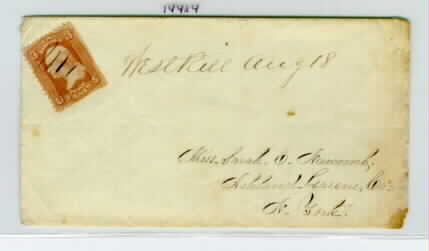 14424
West Kill Aug 18
Miss Sarah O. Newcomb,
Ashland Greene, Co.
N. York.